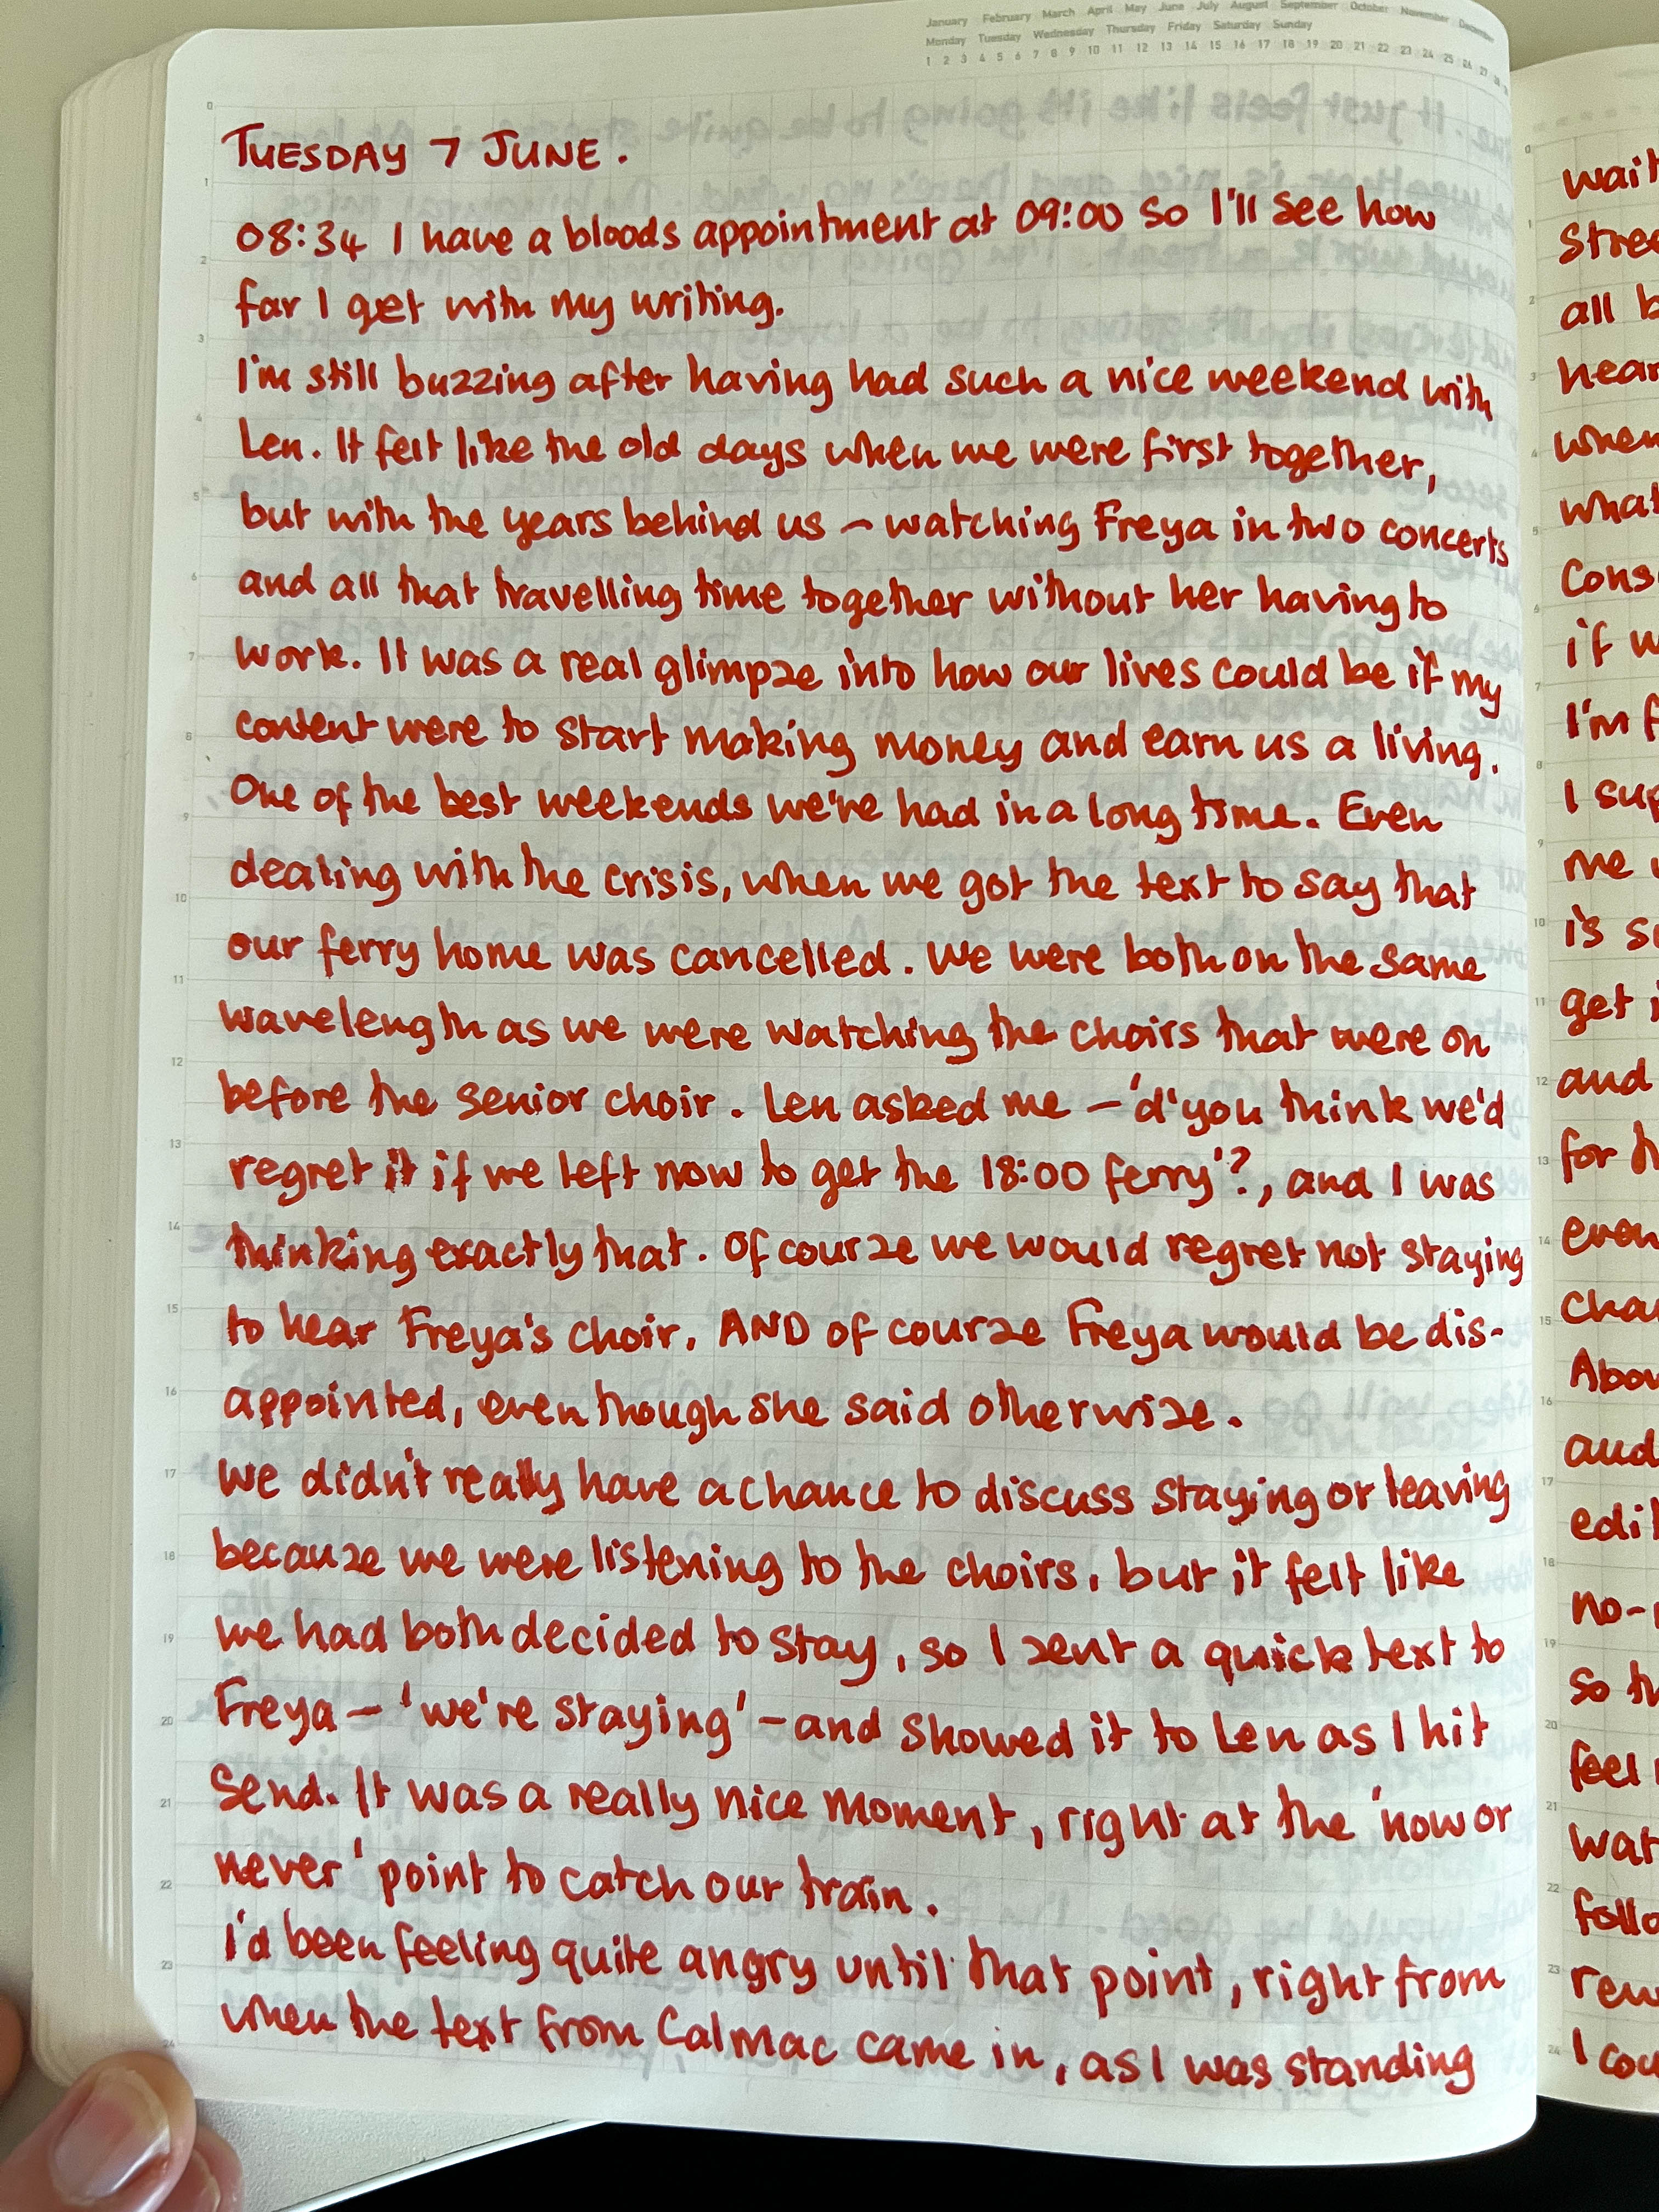 January February March April May June July August September October November December
Monday Tuesday Wednesday Thursday Friday Saturday Sunday
1 2 3 4 5 6 7 8 9 10 11 12 13 14 15 16 17 18 19 20 21 22 23 24 25 26 27
TUESDAY 7 JUNE.
08:34 I have a bloods appointment at 09:00 so I'll see how
far I get with my writing.
I'm still buzzing after having had such a nice weekend with
Len. It felt like the old days when we were first together,
but with the years behind us – watching Freya in two concerts
and all that travelling time together without her having to
work. It was a real glimpse into how our lives could be if my
content were to start making money and earn us a living.
One of the best weekends we've had in a long time. Even
dealing with the crisis, when we got the text to say that
our ferry home was cancelled. We were both on the same
wavelength as we were watching the choirs that were on
before the senior choir. Len asked me – 'd'you think we'd
regret it if we left now to get the 18:00 ferry'?, and I was
thinking exactly that. Of course we would regret not staying
to hear Freya's choir. AND of course Freya would be dis-
appointed, even though she said otherwise.
We didn't really have a chance to discuss staying or leaving
because we were listening to the choirs, but it felt like
we had both decided to stay, so I sent a quick text to
Freya – 'we're staying' – and showed it to Len as I hit
send. It was a really nice moment, right at the 'now or
never' point to catch our train.
I'd been feeling quite angry until that point, right from
when the text from CalMac came in, as I was standing